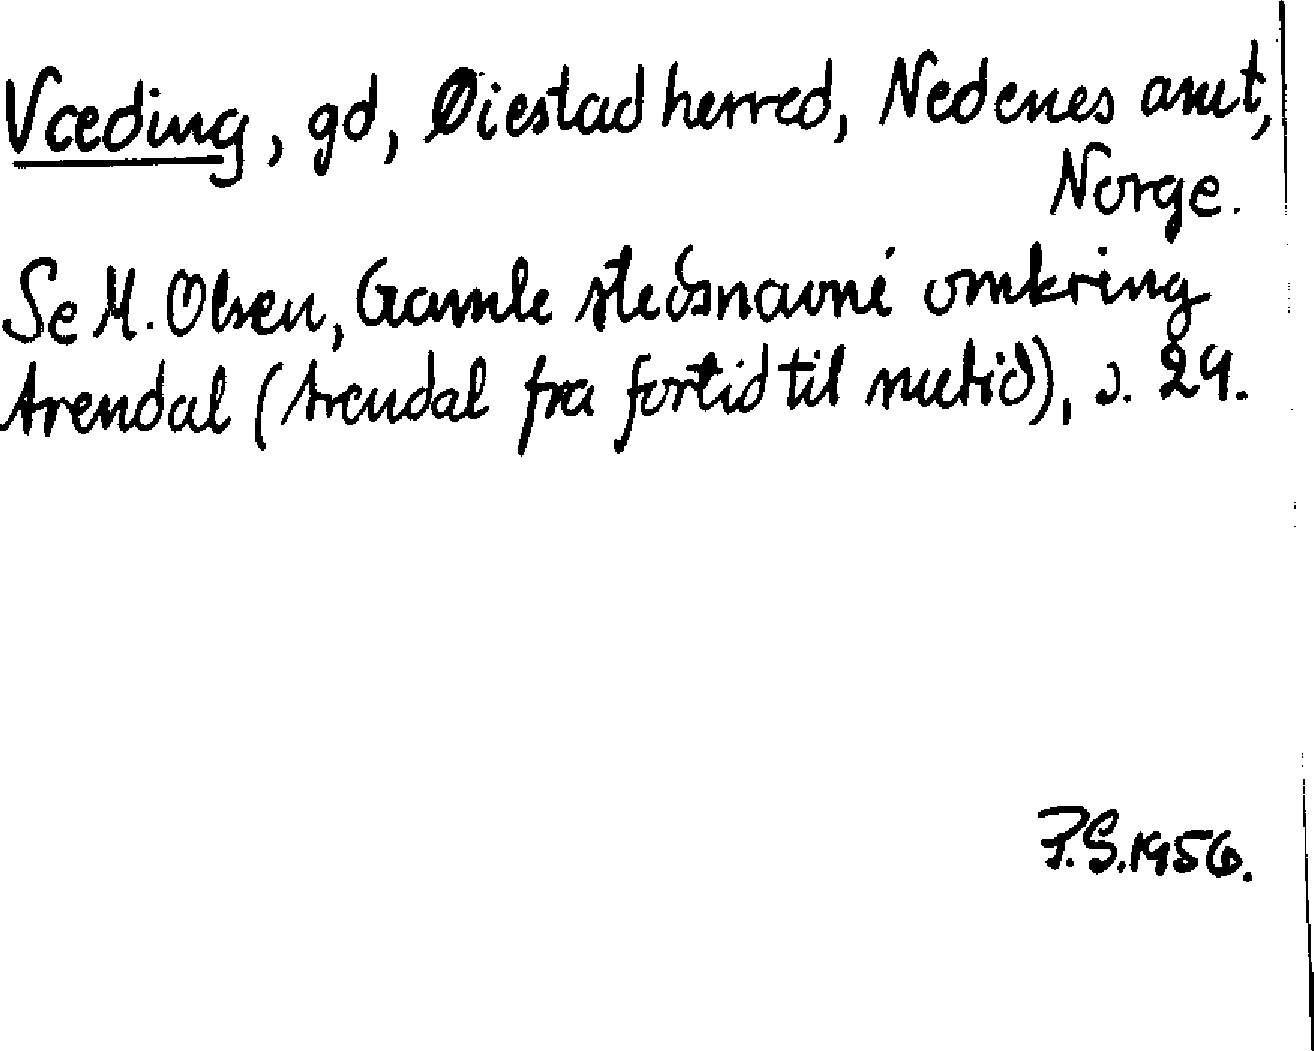 Væding, gd, Øiestad herred, Nedenes amt,
Norge.
Se M. Olsen, Gamle stedsnavne omkring
Arendal (Arendal fra fortid til nutid), s. 29.
P.S. 1956.